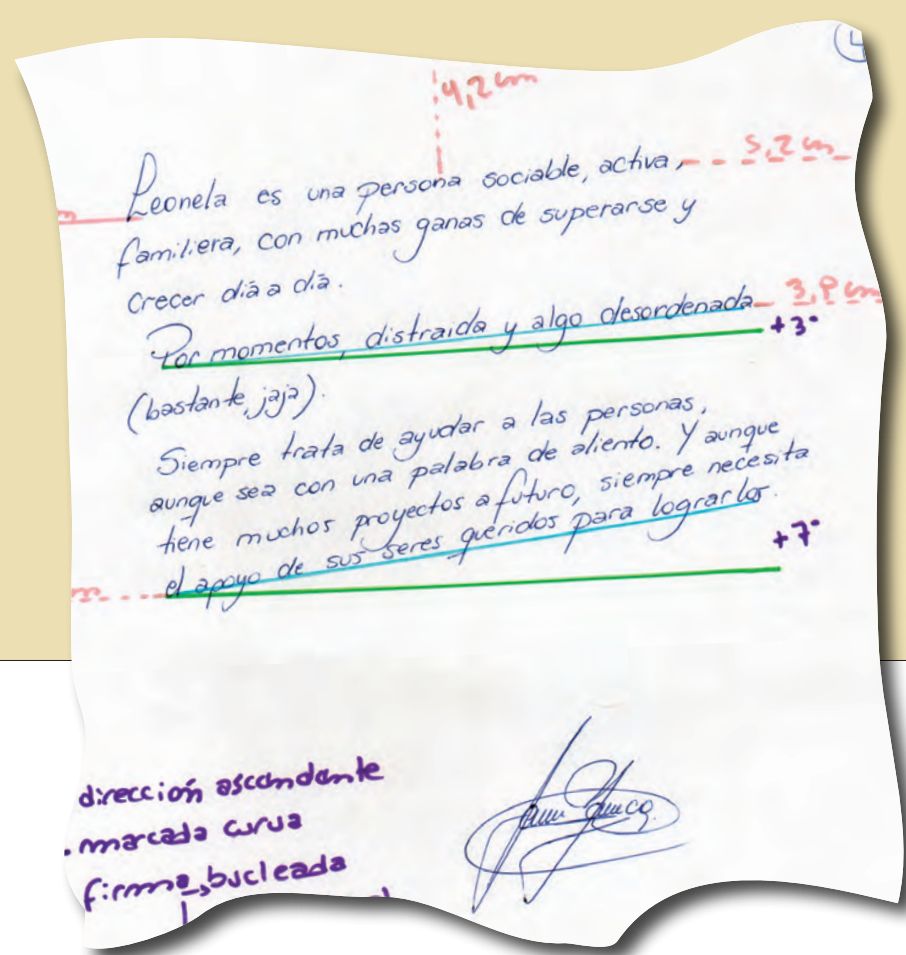 4
4,2 cm
Leonela es una persona sociable, activa, 5,2 cm
familiera, con muchas ganas de superarse y
crecer día a día.
Por momentos, distraida y algo desordenada 3,8 cm
+3°
(bastante, jaja).
Siempre trata de ayudar a las personas,
aunque sea con una palabra de aliento. Y aunque
tiene muchos proyectos a futuro, siempre necesita
el apoyo de sus seres queridos para lograrlos.
+7°
dirección ascendente
marcada curva
firma bucleada